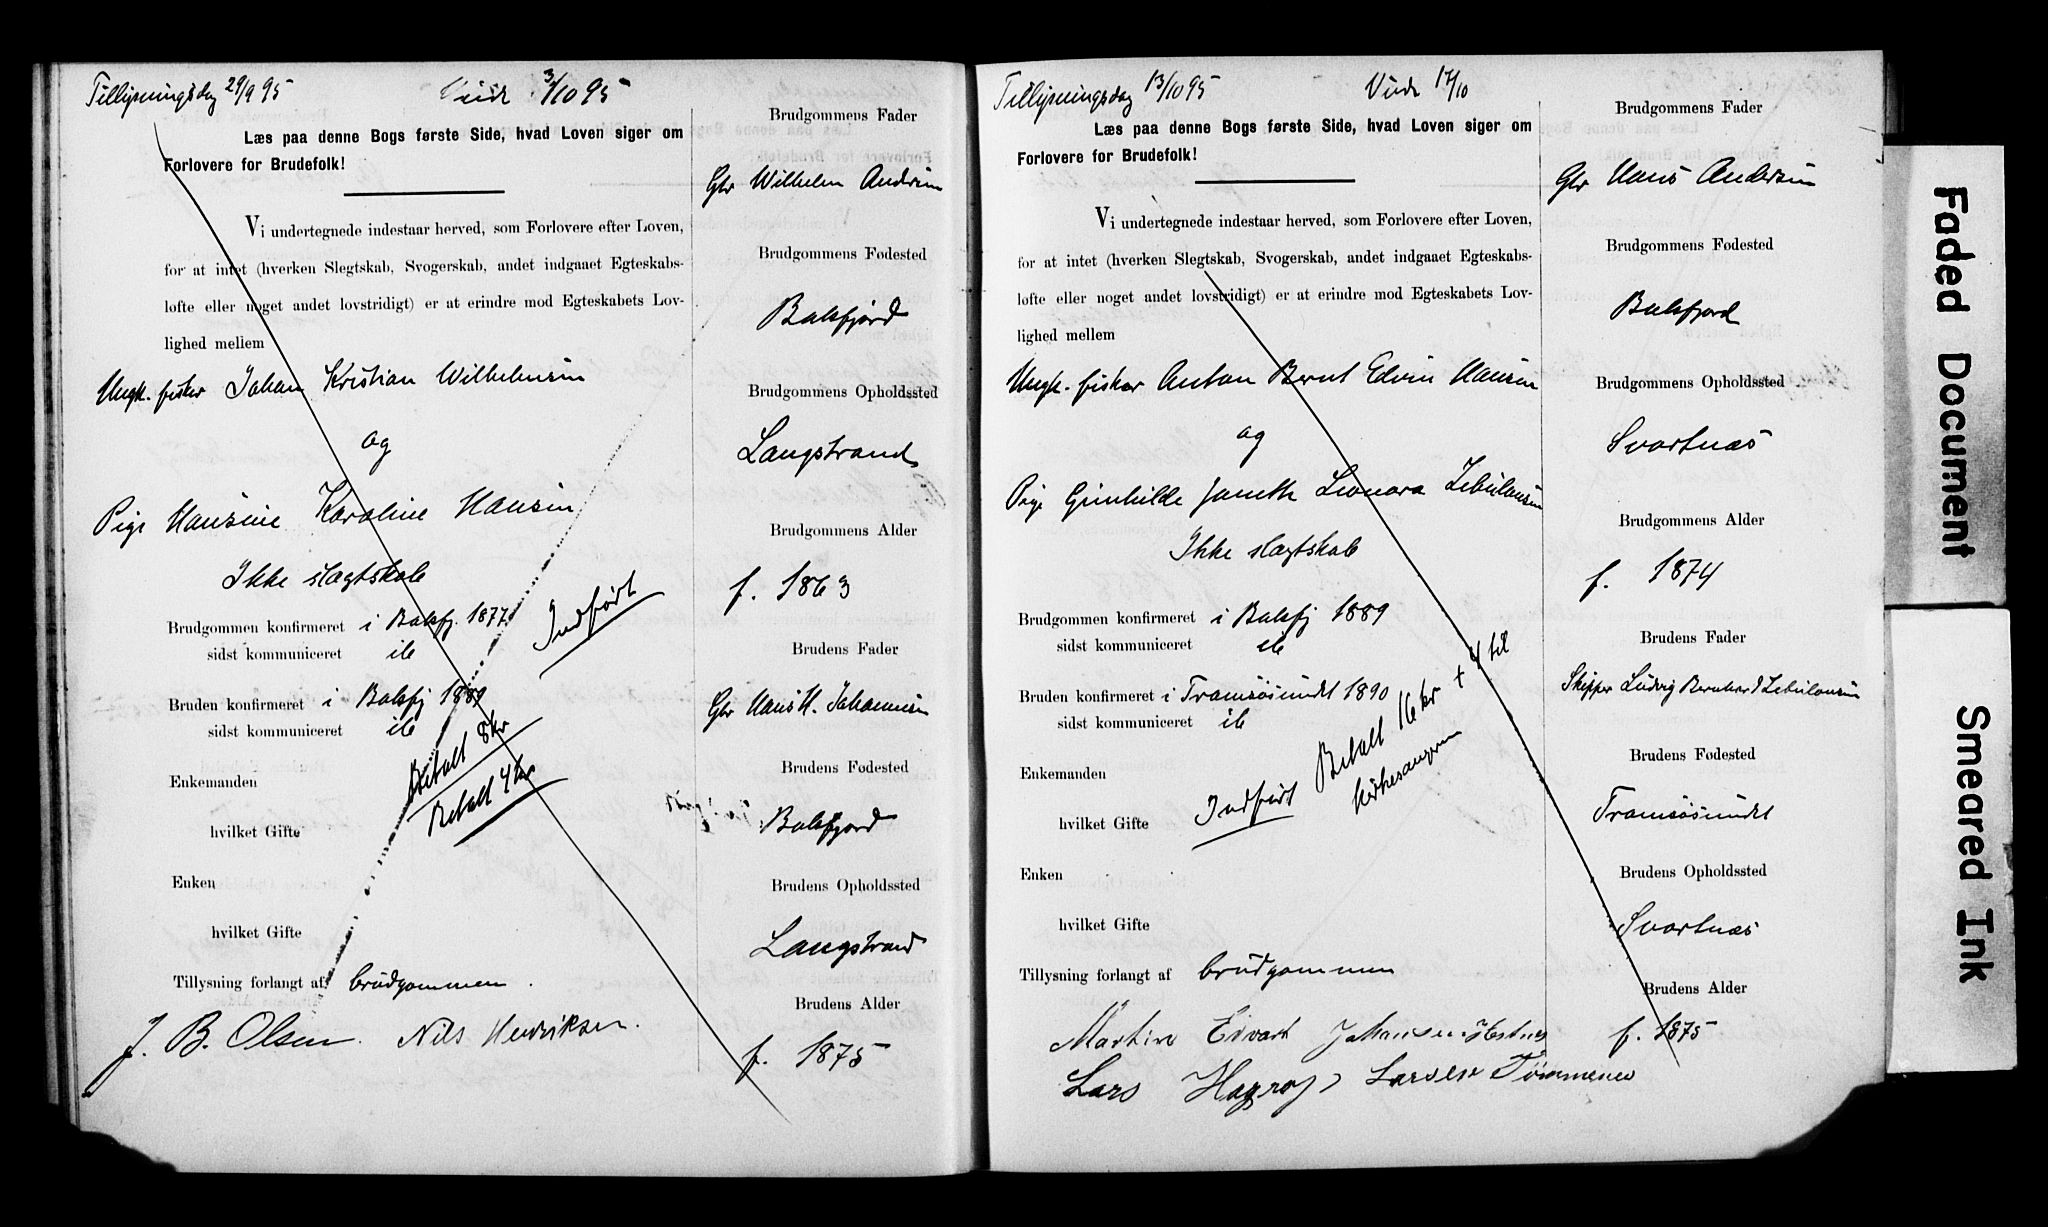 Tillysningsdag 29/9 95 Viede 3/10 95
Læs paa denne Bogs første Side, hvad Loven siger om
Forlovere for Brudefolk!
Vi undertegnede indestaar herved, som Forlovere efter Loven,
for at intet (hverken Slegtskab, Svogerskab, andet indgaaet Egteskabs-
løfte eller noget andet lovstridigt) er at erindre mod Egteskabets Lov-
lighed mellem
Ungk. fisker Johan Kristian Wilhelmsen
og
Pige Hansine Karoline Hansen
Ikke slægtskab
Brudgommen konfirmeret i Balsfj. 1877
sidst kommuniceret ib
Indført
Bruden konfirmeret i Balsfj 1889
sidst kommuniceret ib
Betalt 8 kr
Betalt 4 kr
Enkemanden
hvilket Gifte
Enken
hvilket Gifte
Tillysning forlangt af brudgommen.
J. B. Olsen. Nils Hendriksen.
Brudgommens Fader
Gbr Wilhelm Andersen
Brudgommens Fødested
Balsfjord
Brudgommens Opholdssted
Langstrand
Brudgommens Alder
f. 1863
Brudens Fader
Gbr Hans H. Johannesen
Brudens Fødested
Balsfjord
Brudens Opholdssted
Langstrand
Brudens Alder
f. 1875
Tillysningsdag 13/10 95 Viede 17/10
Læs paa denne Bogs første Side, hvad Loven siger om
Forlovere for Brudefolk!
Vi undertegnede indestaar herved, som Forlovere efter Loven,
for at intet (hverken Slegtskab, Svogerskab, andet indgaaet Egteskabs-
løfte eller noget andet lovstridigt) er at erindre mod Egteskabets Lov-
lighed mellem
Ungk. fisker Anton Bernt Edvin Hansen
og
Pige Gunhilde Janetta Leonora Zebulonsen
Ikke slægtskab
Brudgommen konfirmeret i Balsfj 1889
sidst kommuniceret ib
Bruden konfirmeret i Tromsøsundet 1890
sidst kommuniceret ib
Betalt 16 kr + 4 til
kirkesangeren
Indført
Enkemanden
hvilket Gifte
Enken
hvilket Gifte
Tillysning forlangt af brudgommen
Martin Edvart Johansen
Lars Larsen Tømmernes
Brudgommens Fader
Gbr Hans Andersen
Brudgommens Fødested
Balsfjord
Brudgommens Opholdssted
Svartnæs
Brudgommens Alder
f. 1874
Brudens Fader
Skipper Ludvig Bernhard Zebulonsen
Brudens Fødested
Tromsøsundet
Brudens Opholdssted
Svartnæs
Brudens Alder
f. 1875
Faded Document
Smeared Ink